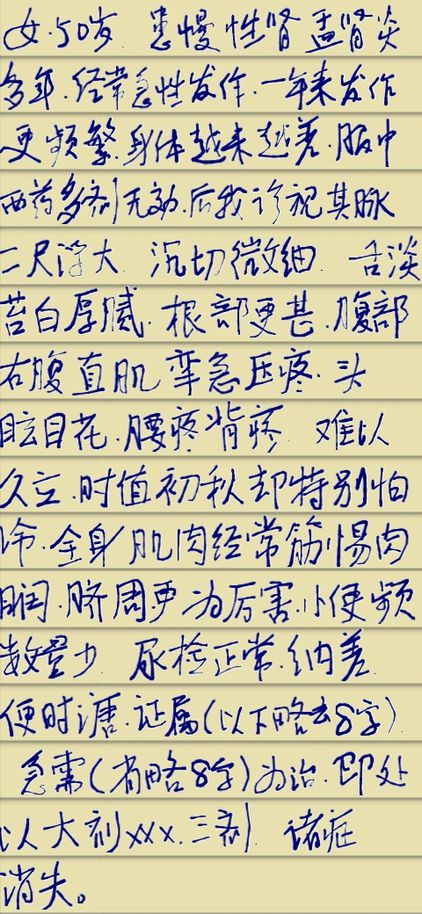 女.50岁. 患慢性肾盂肾炎
多年.经常急性发作.一年来发作
更频繁.身体越来越差.服中
西药多剂无效.后我诊视其脉
二尺浮大. 沉切微细. 舌淡
苔白厚腻.根部更甚.腹部
右腹直肌挛急压疼.头
眩目花.腰疼背疼. 难以
久立.时值初秋却特别怕
冷.全身肌肉经常筋惕肉
瞤.脐周更为厉害.小便频
数量少. 尿检正常.纳差.
便时溏.证属(以下略去8字).
急需(省略8字)为治.即处
以大剂xxx.三剂. 诸症
消失。